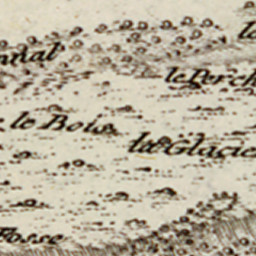 le Perch
le Bois
la Glacie
Fosse